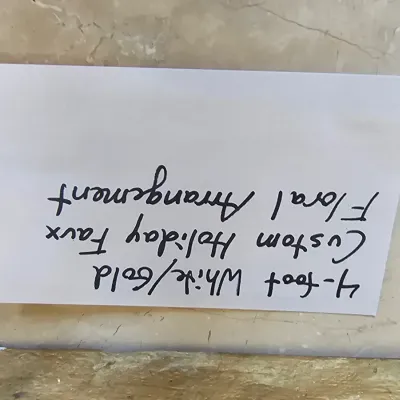 4-foot White/Gold
Custom Holiday Faux
Floral Arrangement